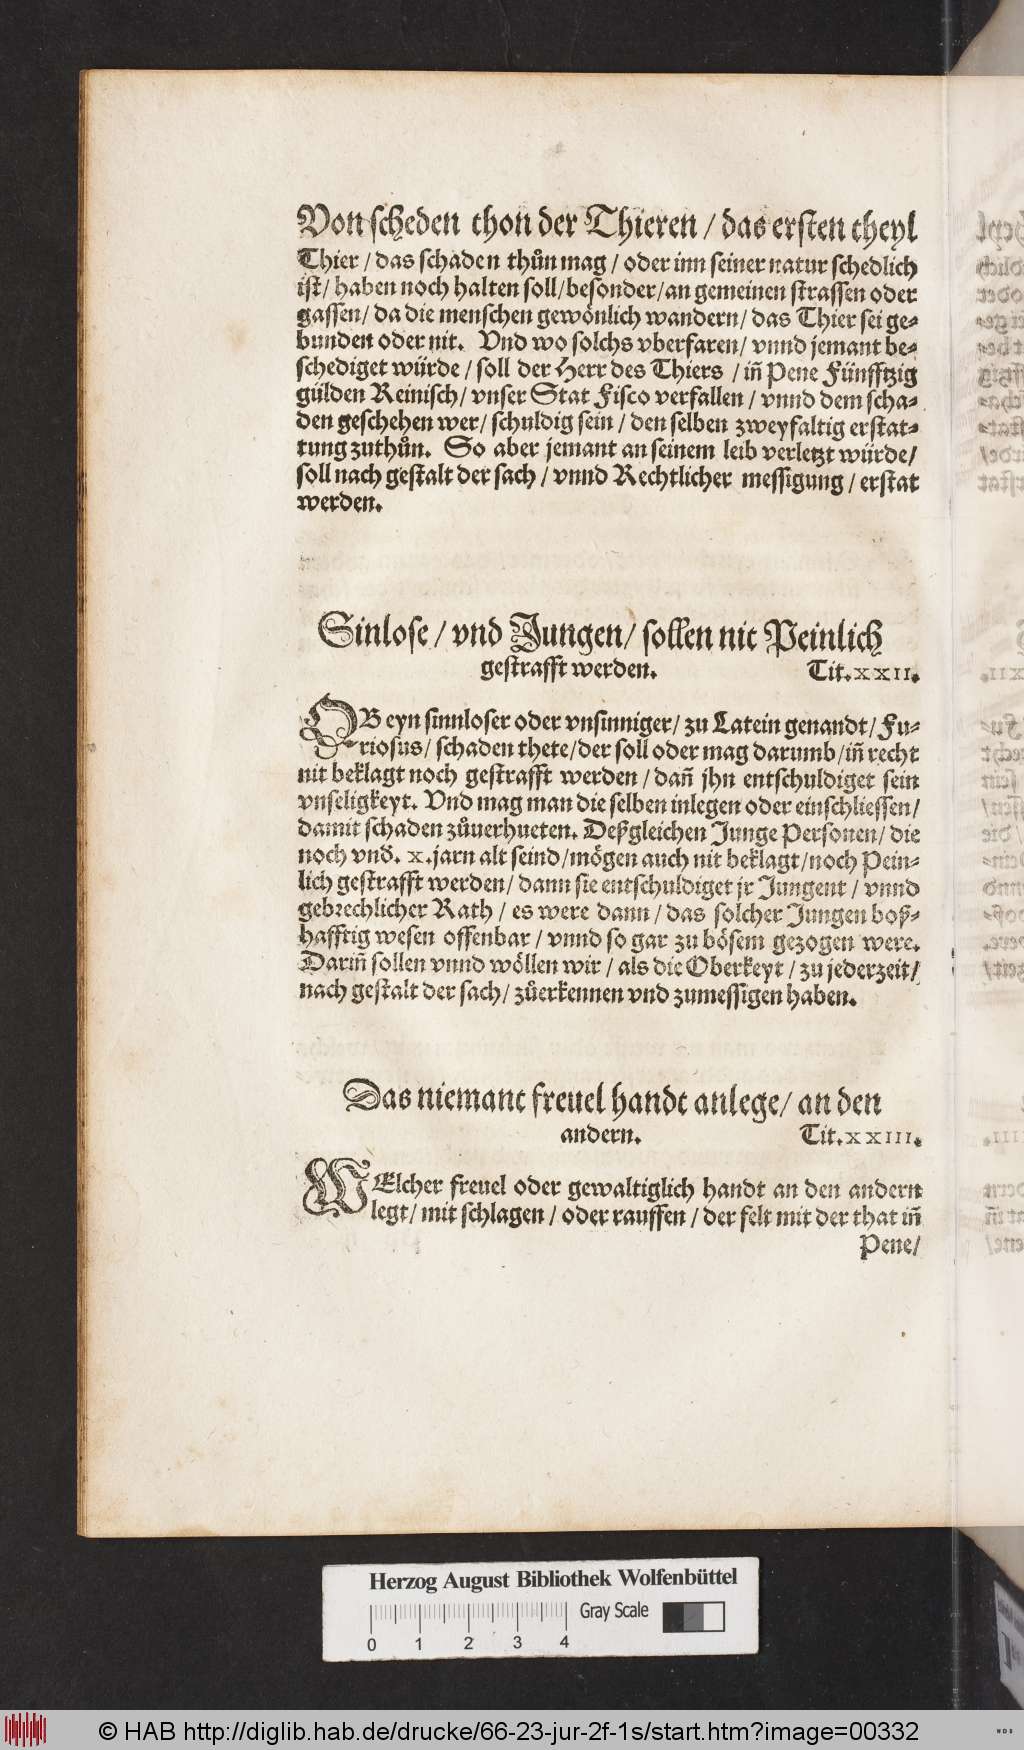 Von scheden thon der Thieren / das ersten theyl
Thier / das schaden thůn mag / oder inn seiner natur schedlich
ist / haben noch halten soll / besonder / an gemeinen strassen oder
gassen / da die menschen gewönlich wandern / das Thier sei ge-
bunden oder nit. Vnd wo solchs vberfaren / vnnd jemant be-
schediget würde / soll der Herr des Thiers / iñ Pene Fünfftzig
gülden Reinisch / vnser Stat Fisco verfallen / vnnd dem scha-
den geschehen wer / schuldig sein / den selben zweyfaltig erstat-
tung zuthůn. So aber jemant an seinem leib verletzt würde /
soll nach gestalt der sach / vnnd Rechtlicher messigung / erstat
werden.
Sinlose / vnd Jungen / sollen nit Peinlich
gestrafft werden. Tit. XXII.
OB eyn sinnloser oder vnsinniger / zu Latein genandt / Fu-
riosus / schaden thete / der soll oder mag darumb / iñ recht
nit beklagt noch gestrafft werden / dañ jhn entschuldiget sein
vnseligkeyt. Vnd mag man die selben inlegen oder einschliessen /
damit schaden zůuerhueten. Deßgleichen Junge Personen / die
noch vnd̃. X. jarn alt seind / mögen auch nit beklagt / noch Pein-
lich gestrafft werden / dann sie entschuldiget jr Jungent / vnnd
gebrechlicher Rath / es were dann / das solcher Jungen boß-
hafftig wesen offenbar / vnnd so gar zu bösem gezogen were.
Dariñ sollen vnnd wöllen wir / als die Oberkeyt / zu jederzeit /
nach gestalt der sach / zůerkennen vnd zumessigen haben.
Das niemant freuel handt anlege / an den
andern. Tit. XXIII.
WElcher freuel oder gewaltiglich handt an den andern
legt / mit schlagen / oder rauffen / der felt mit der that iñ
Pene /
Herzog August Bibliothek Wolfenbüttel
Gray Scale
0 1 2 3 4
© HAB http://diglib.hab.de/drucke/66-23-jur-2f-1s/start.htm?image=00332